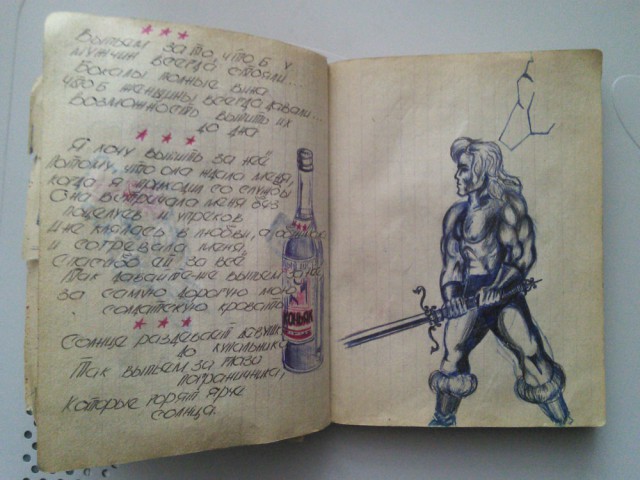 Выпьем за то, что б у
мужчин всегда стояли...
Бокалы полные вина
что б женщины всегда давали...
возможность выпить их
до дна
Я хочу выпить за неё
потому, что она ждала меня,
когда я приходил со службы
Она встричала меня без
поцелуев и упреков
и не клялась в любви, а
и согревала меня,
Спасибо ей за всё
Так давайте-же выпьем за неё,
за самую дорогую мою
солдатскую кровать
Солнце раздевает девушк
до купальника
Так выпьем за глаза
пограничника,
которые горят ярче
солнца.
коньяк